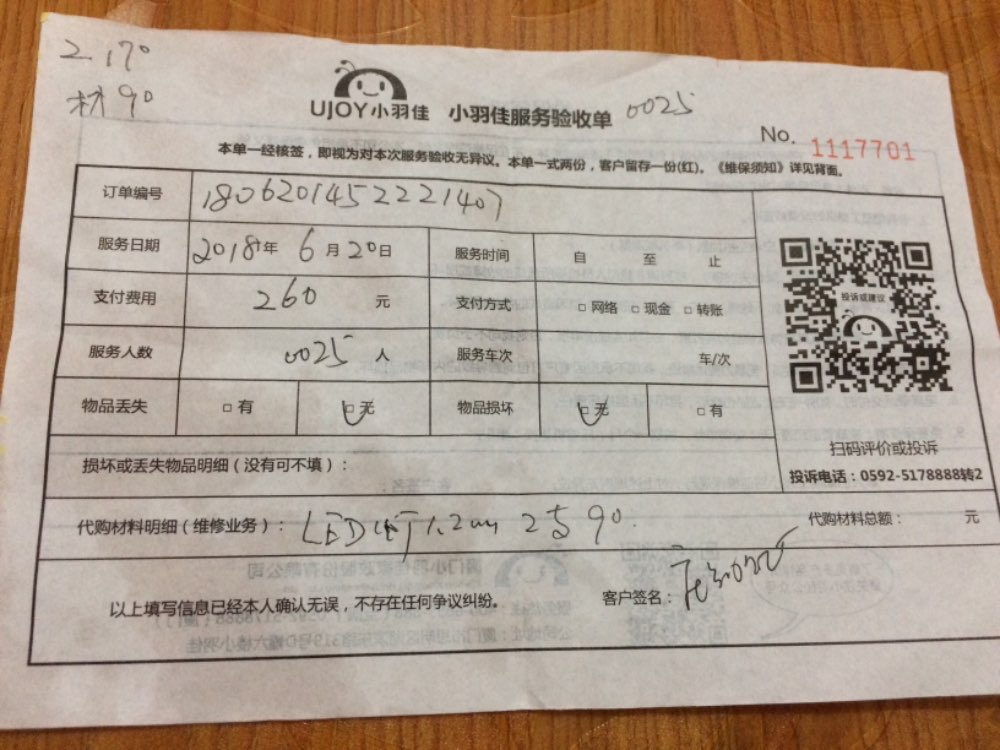 2.170
材90
UJOY小羽佳 小羽佳服务验收单 0025
No. 1117701
本单一经核签，即视为对本次服务验收无异议。本单一式两份，客户留存一份(红)。《维保须知》详见背面。
订单编号 1806201452221407
服务日期 2018年 6月 20日 服务时间 自 至 止
支付费用 260 元 支付方式 □网络 □现金 □转账
投诉或建议
服务人数 0025 人 服务车次 车/次
物品丢失 □有 □无 物品损坏 □无 □有
扫码评价或投诉
损坏或丢失物品明细（没有可不填）：
投诉电话：0592-5178888转2
代购材料明细（维修业务）： LED灯1.2 90. 代购材料总额： 元
以上填写信息已经本人确认无误，不存在任何争议纠纷。 客户签名：